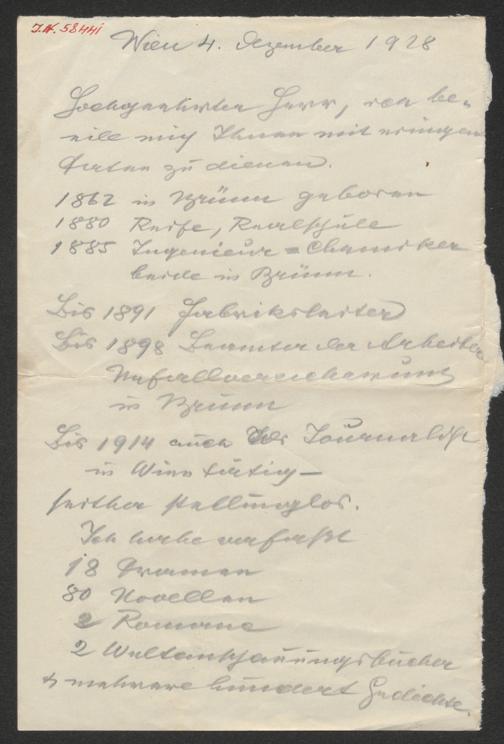 I.N. 58441
Wien 4. Dezember 1928
Hochgeehrter Herr, ich be-
eile mich Ihnen mit einigen
Daten zu dienen.
1862 in Brünn geboren
1880 Reife, Realschule
1885 Ingenieur = Chemiker
beide in Brünn.
Bis 1891 Fabriksleiter
Bis 1898 Beamter der Arbeiter
Unfallversicherung
in Brünn
Bis 1914 auch als Journalist
in Wien tätig —
seither stellunglos.
Ich habe verfaßt
18 Dramen
80 Novellen
2 Romane
2 Weltanschauungsbücher
& mehrere hundert Gedichte.